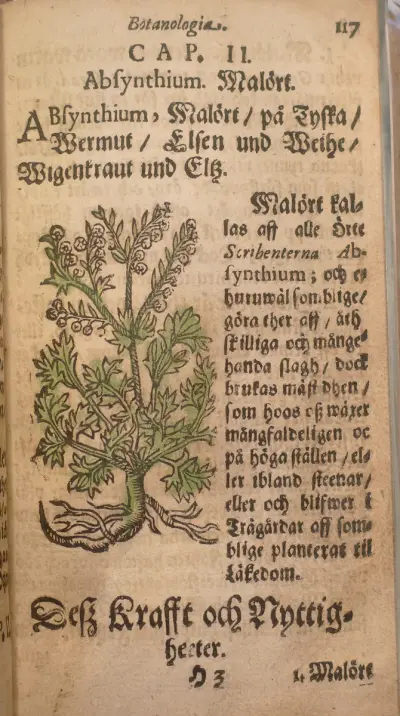 Botanologia. 117
CAP. II.
Abſynthium. Malört.
ABſynthium, Malört / på Tyſka /
Wermut / Elſen und Weihe /
Wigenkraut und Eltz.
Malört kal-
las aff alle Örte
Scribenterna Ab-
ſynthium; och e-
huruwäl ſomblige/
göra ther aff / åth
ſkilliga och månge-
handa ſlagh / dock
brukas mäſt dhen /
ſom hoos oß wäxer
mångfaldeligen oc
på höga ſtällen / el-
ler ibland ſteenar /
eller och blifwer i
Trägårdar aff ſom-
blige planterat til
Läkedom.
Deſz Krafft och Nyttig-
heeter.
H 3 1. Malört